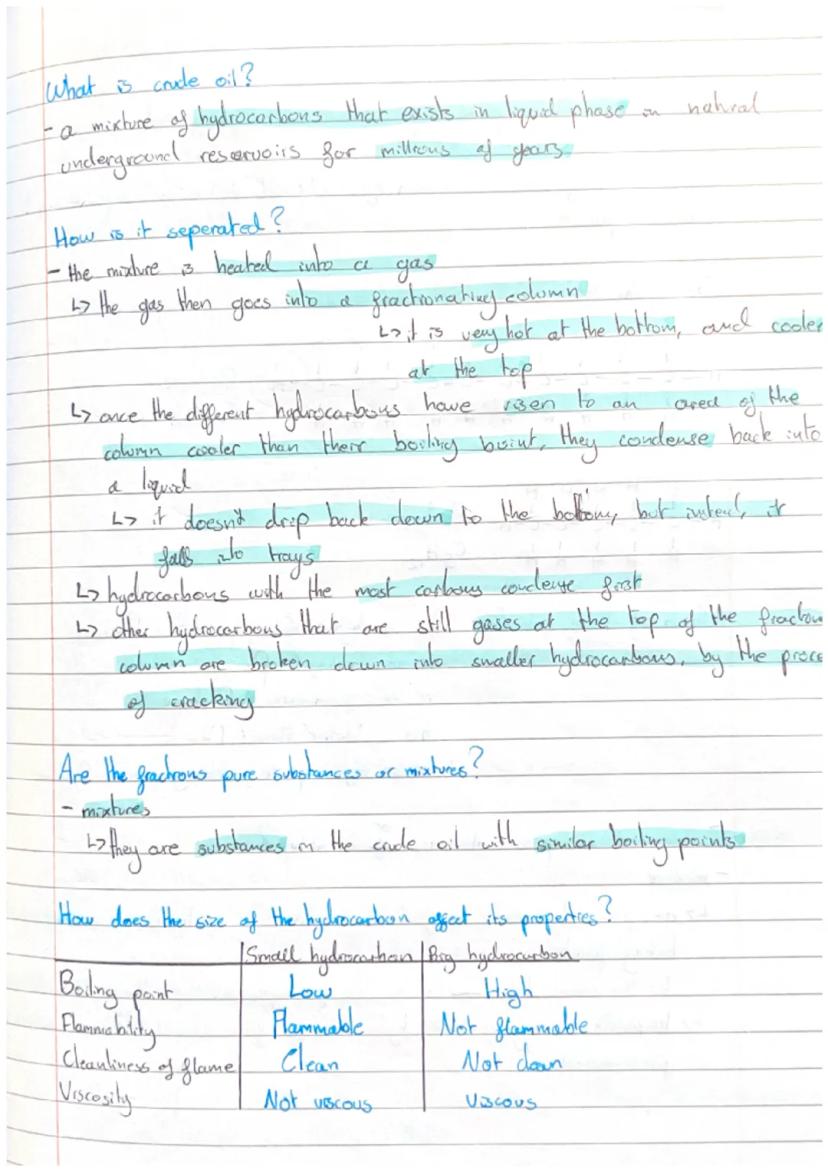 What is crude oil?
- a mixture of hydrocarbons that exists in liquid phase in natural
underground reservoirs for millions of years
How is it seperated?
- the mixture is heated into a gas
↳ the gas then goes into a fractionating column
↳ it is very hot at the bottom, and cooler
at the top
↳ once the different hydrocarbons have risen to an area of the
column cooler than their boiling point, they condense back into
a liquid
↳ it doesn't drip back down to the bottom, but instead, it
falls into trays
↳ hydrocarbons with the most carbons condense first
↳ other hydrocarbons that are still gases at the top of the fraction
column are broken down into smaller hydrocarbons, by the proce
of cracking
Are the fractions pure substances or mixtures?
- mixtures
↳ they are substances in the crude oil with similar boiling points
How does the size of the hydrocarbon affect its properties?
Small hydrocarbon Big hydrocarbon
Boiling point Low High
Flammability Flammable Not flammable
Cleanliness of flame Clean Not clean
Viscosity Not viscous Viscous